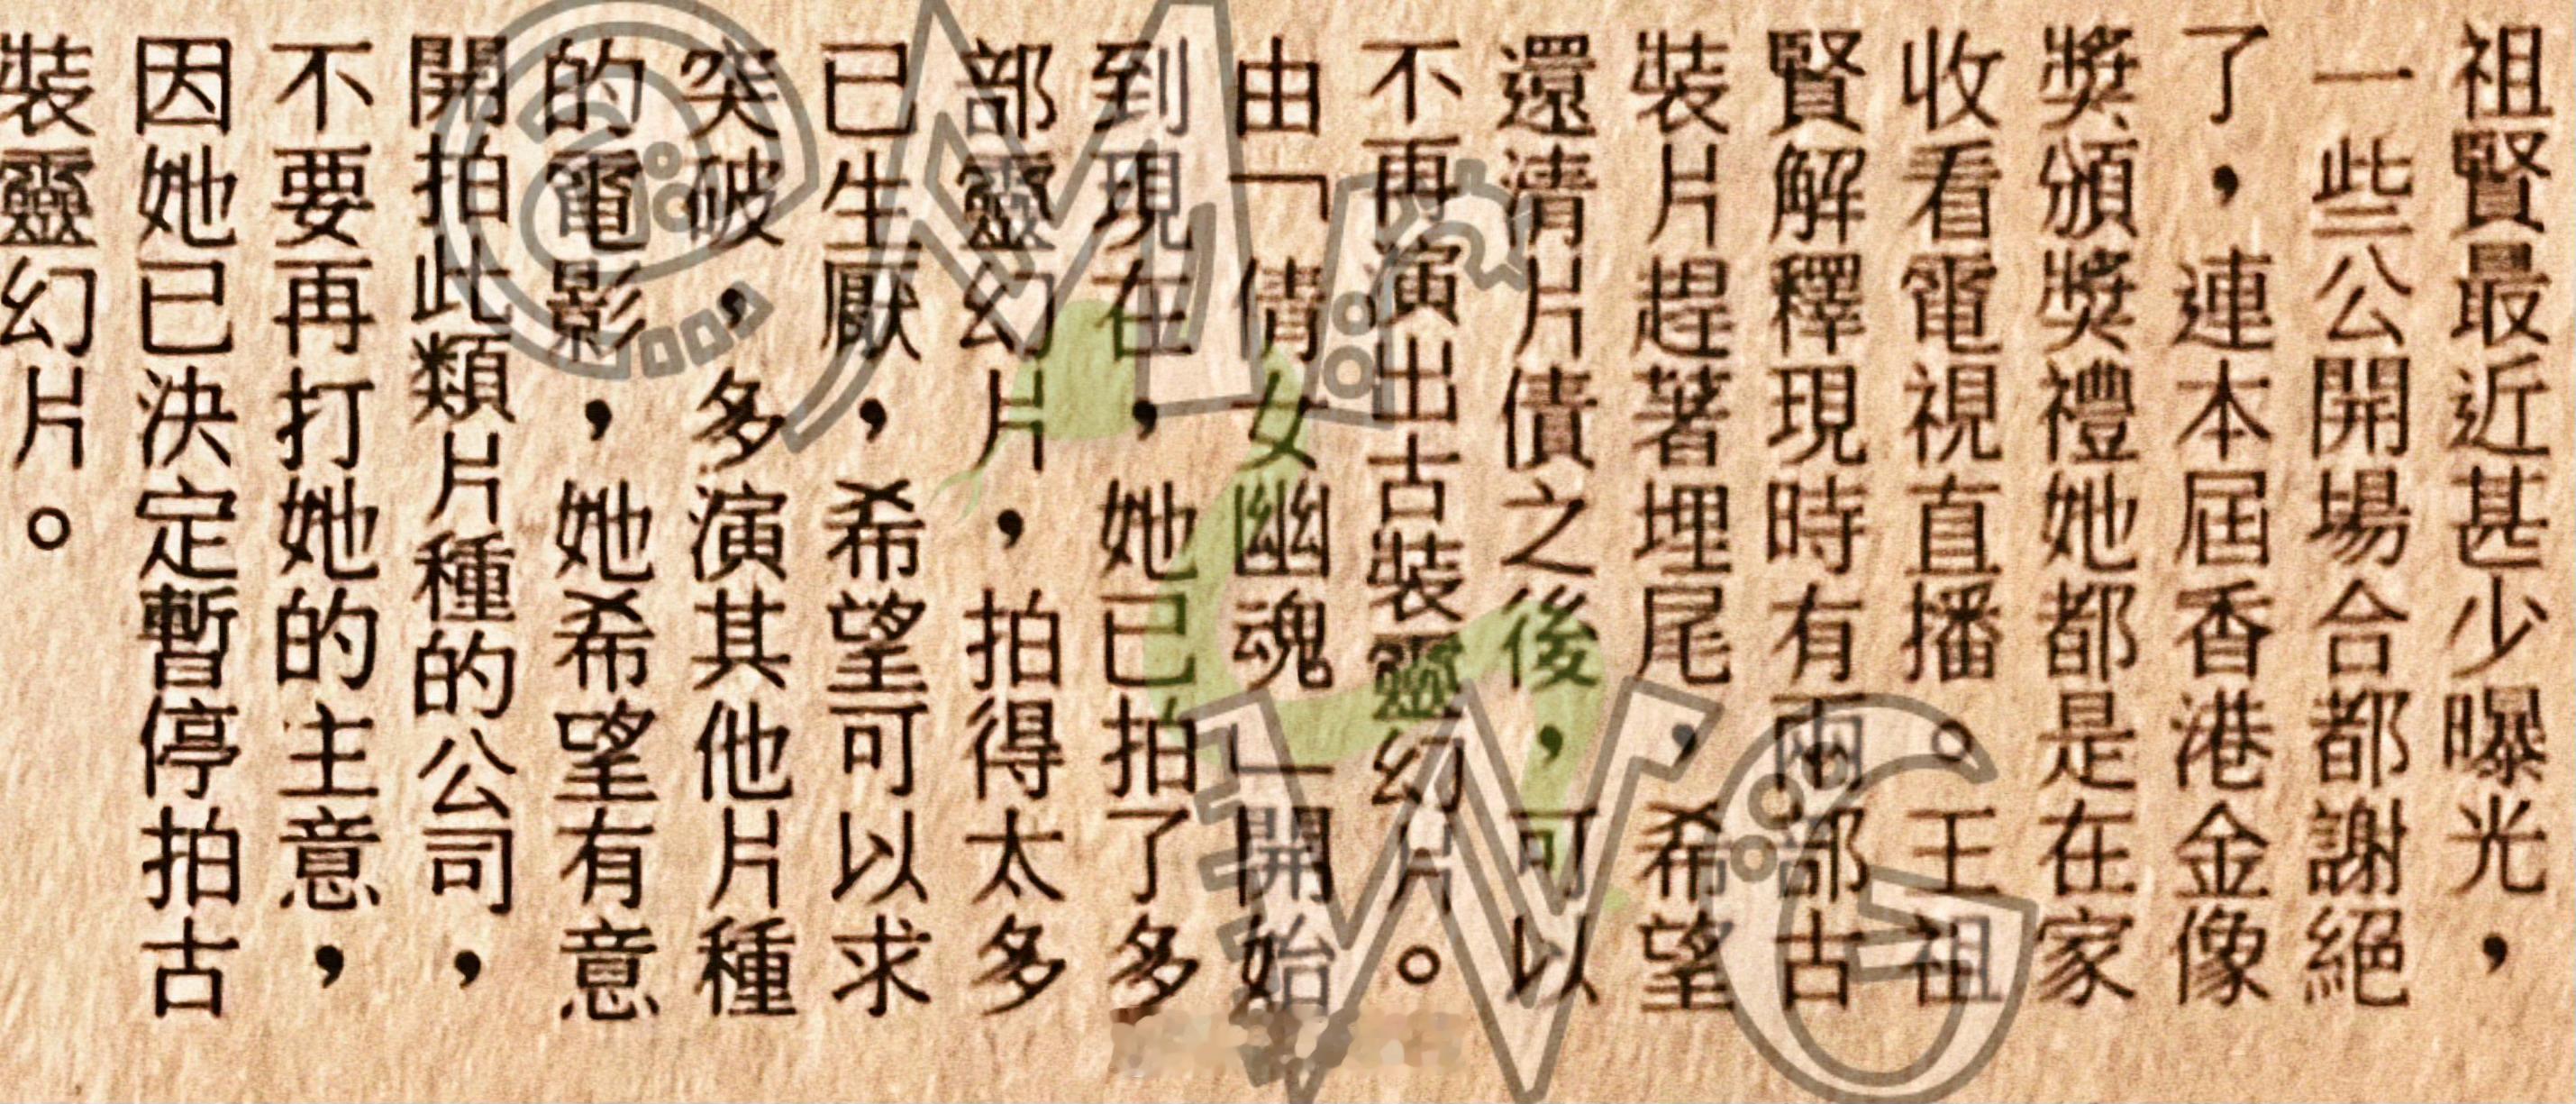 祖賢最近甚少曝光，
一些公開場合都謝絕
了，連本屆香港金像
獎頒獎禮她都是在家
收看電視直播。王祖
賢解釋現時有兩部古
裝片趕著埋尾，希望
還清片債之後，可以
不再演出古裝靈幻片。
由「倩女幽魂」開始
到現在，她已拍了多
部靈幻片，拍得太多
已生厭，希望可以求
突破，多演其他片種
的電影，她希望有意
開拍此類片種的公司，
不要再打她的主意，
因她已決定暫停拍古
裝靈幻片。
@Mr
WG